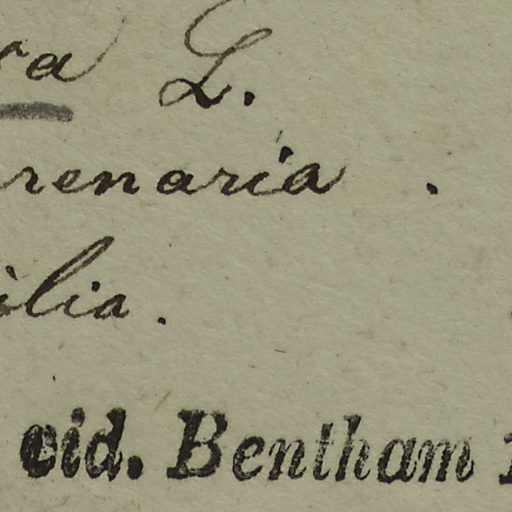 ra L.
renaria .
ilia.
vid. Bentham